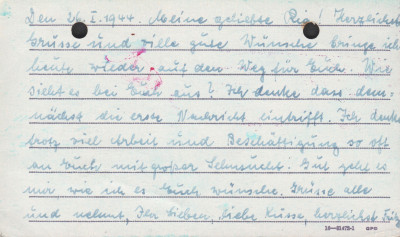 Den 26.I.1944. Meine geliebte Pia! Herzlichste
Grüsse und ville gute Wünsche bringe ich
heute wieder auf den Weg für Euch. Wie
sieht es bei Euch aus? Ich denke dass dem-
nächst die erste Nachricht eintrifft. Ich denke
trotz viel Arbeit und Beschäftigung so oft
an Euch mit großer Sehnsucht! Gut geht es
mir wie ich es Euch wünsche. Grüsse alle
und nehmt, Ihr Lieben, liebe Küsse, herzlichst Fritz
GPO